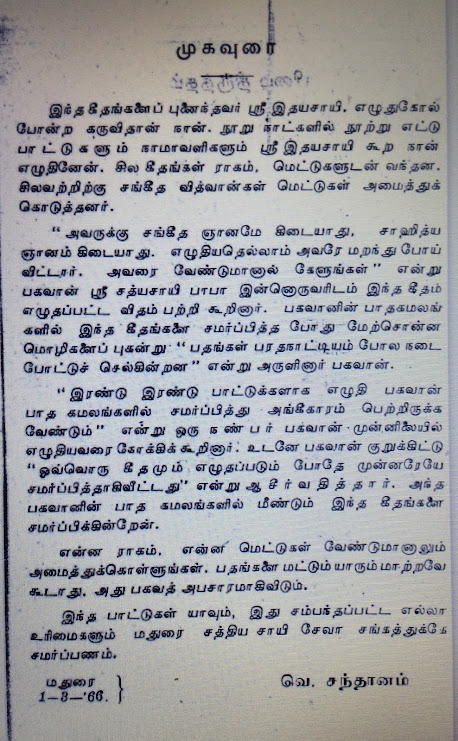 முகவுரை
இந்த கீதங்களைப் புனைந்தவர் ஸ்ரீ இதயசாயி. எழுதுகோல்
போன்ற கருவிதான் நான். நூறு நாட்களில் நூற்று எட்டு
பாட்டுகளும் நாமாவளிகளும் ஸ்ரீ இதயசாயி கூற நான்
எழுதினேன். சில கீதங்கள் ராகம், மெட்டுகளுடன் வந்தன.
சிலவற்றிற்கு சங்கீத வித்வான்கள் மெட்டுகள் அமைத்துக்
கொடுத்தனர்.
“அவருக்கு சங்கீத ஞானமே கிடையாது, சாஹித்ய
ஞானம் கிடையாது. எழுதியதெல்லாம் அவரே மறந்து போய்
விட்டார். அவரை வேண்டுமானால் கேளுங்கள்” என்று
பகவான் ஸ்ரீ சத்யசாயி பாபா இன்னொருவரிடம் இந்த கீதம்
எழுதப்பட்ட விதம் பற்றி கூறினார். பகவானின் பாதகமலங்
களில் இந்த கீதங்களை சமர்ப்பித்த போது மேற்சொன்ன
மொழிகளைப் புகன்று “பதங்கள் பரதநாட்டியம் போல நடை
போட்டுச் செல்கின்றன” என்று அருளினார் பகவான்.
“இரண்டு இரண்டு பாட்டுக்களாக எழுதி பகவான்
பாத கமலங்களில் சமர்ப்பித்து அங்கீகாரம் பெற்றிருக்க
வேண்டும்” என்று ஒரு நண்பர் பகவான் முன்னிலையில்
எழுதியவரை நோக்கிக் கூறினார். உடனே பகவான் குறுக்கிட்டு
“ஒவ்வொரு கீதமும் எழுதப்படும் போதே முன்னரேயே
சமர்ப்பித்தாகிவிட்டது” என்று ஆசீர்வதித்தார். அந்த
பகவானின் பாத கமலங்களில் மீண்டும் இந்த கீதங்களை
சமர்ப்பிக்கின்றேன்.
என்ன ராகம், என்ன மெட்டுகள் வேண்டுமானாலும்
அமைத்துக்கொள்ளுங்கள். பதங்களை மட்டும் யாரும் மாற்றவே
கூடாது, அது பகவத் அபசாரமாகிவிடும்.
இந்த பாட்டுகள் யாவும், இது சம்பந்தப்பட்ட எல்லா
உரிமைகளும் மதுரை சத்திய சாயி சேவா சங்கத்துக்கே
சமர்ப்பணம்.
மதுரை
1-3-'66. } வெ. சந்தானம்